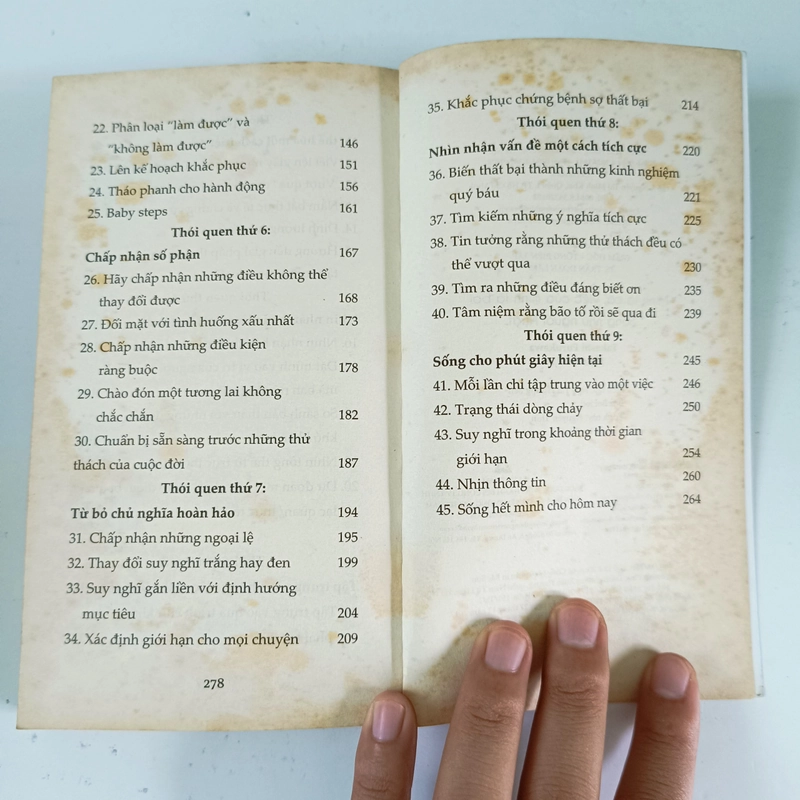 22. Phân loại “làm được” và
“không làm được” 146
23. Lên kế hoạch khắc phục 151
24. Tháo phanh cho hành động 156
25. Baby steps 161
Thói quen thứ 6:
Chấp nhận số phận 167
26. Hãy chấp nhận những điều không thể
thay đổi được 168
27. Đối mặt với tình huống xấu nhất 173
28. Chấp nhận những điều kiện
ràng buộc 178
29. Chào đón một tương lai không
chắc chắn 182
30. Chuẩn bị sẵn sàng trước những thử
thách của cuộc đời 187
Thói quen thứ 7:
Từ bỏ chủ nghĩa hoàn hảo 194
31. Chấp nhận những ngoại lệ 195
32. Thay đổi suy nghĩ trắng hay đen 199
33. Suy nghĩ gắn liền với định hướng
mục tiêu 204
34. Xác định giới hạn cho mọi chuyện 209
278
35. Khắc phục chứng bệnh sợ thất bại 214
Thói quen thứ 8:
Nhìn nhận vấn đề một cách tích cực 220
36. Biến thất bại thành những kinh nghiệm
quý báu 221
37. Tìm kiếm những ý nghĩa tích cực 225
38. Tin tưởng rằng những thử thách đều có
thể vượt qua 230
39. Tìm ra những điều đáng biết ơn 235
40. Tâm niệm rằng bão tố rồi sẽ qua đi 239
Thói quen thứ 9:
Sống cho phút giây hiện tại 245
41. Mỗi lần chỉ tập trung vào một việc 246
42. Trạng thái dòng chảy 250
43. Suy nghĩ trong khoảng thời gian
giới hạn 254
44. Nhịn thông tin 260
45. Sống hết mình cho hôm nay 264